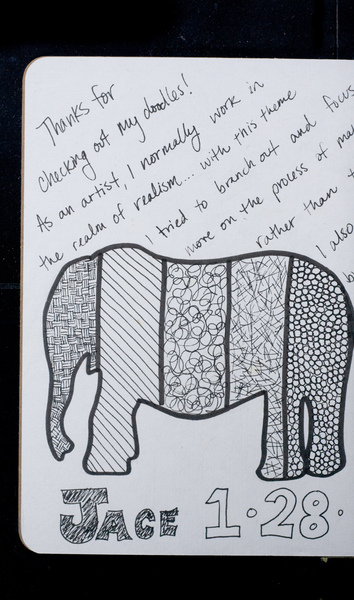 Thanks for
checking out my doodles!
As an artist, I normally work in
the realm of realism... with this theme
I tried to branch out and focus
more on the process of
rather than
I also
JACE 1·28·